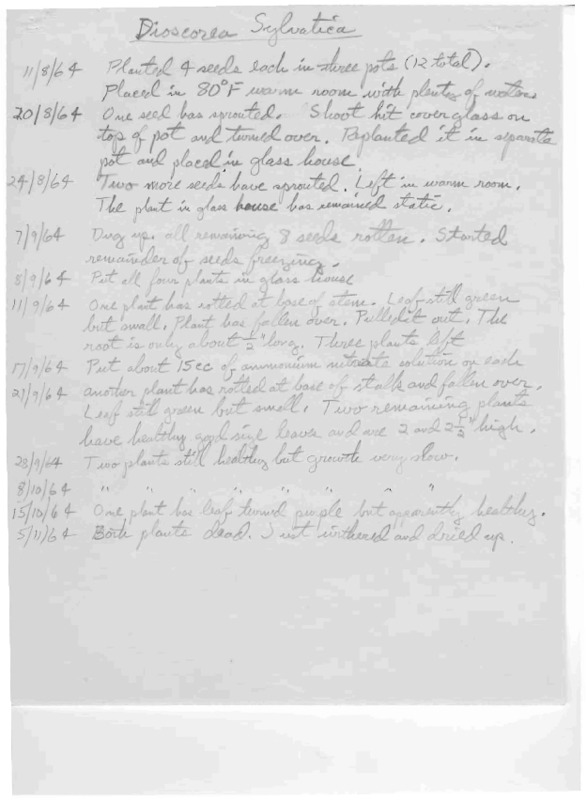 Dioscorea Sylvatica
11/8/64 Planted 4 seeds each in three pots (12 total).
Placed in 80°F warm room with plenty of water
20/8/64 One seed has sprouted. Shoot hit cover glass on
top of pot and turned over. Replanted it in separate
pot and placed in glass house
24/8/64 Two more seeds have sprouted. Left in warm room.
The plant in glass house has remained static.
7/9/64 Dug up all remaining 8 seeds rotten. Started
remainder of seeds freezing.
8/9/64 Put all four plants in glass house
11/9/64 One plant has rotted at base of stem. Leaf still green
but small. Plant has fallen over. Pulled it out. The
root is only about ½" long. Three plants left
17/9/64 Put about 15cc of ammonium nitrate solution on each
21/9/64 another plant has rotted at base of stalk and fallen over.
Leaf still green but small. Two remaining plants
have healthy good size leaves and are 2 and 2½" high.
28/9/64 Two plants still healthy but growth very slow.
8/10/64 " " " " " " "
15/10/64 One plant has leaf turned purple but apparently healthy.
5/11/64 Both plants dead. Just withered and dried up.